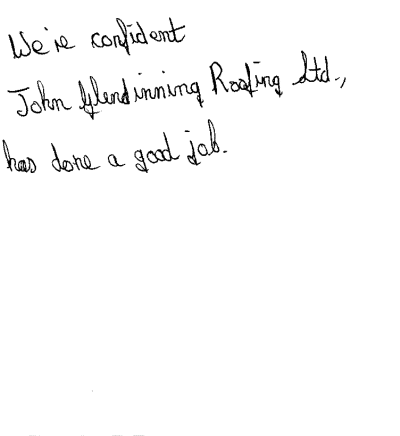 We're confident
John Glendinning Roofing Ltd.,
has done a good job.